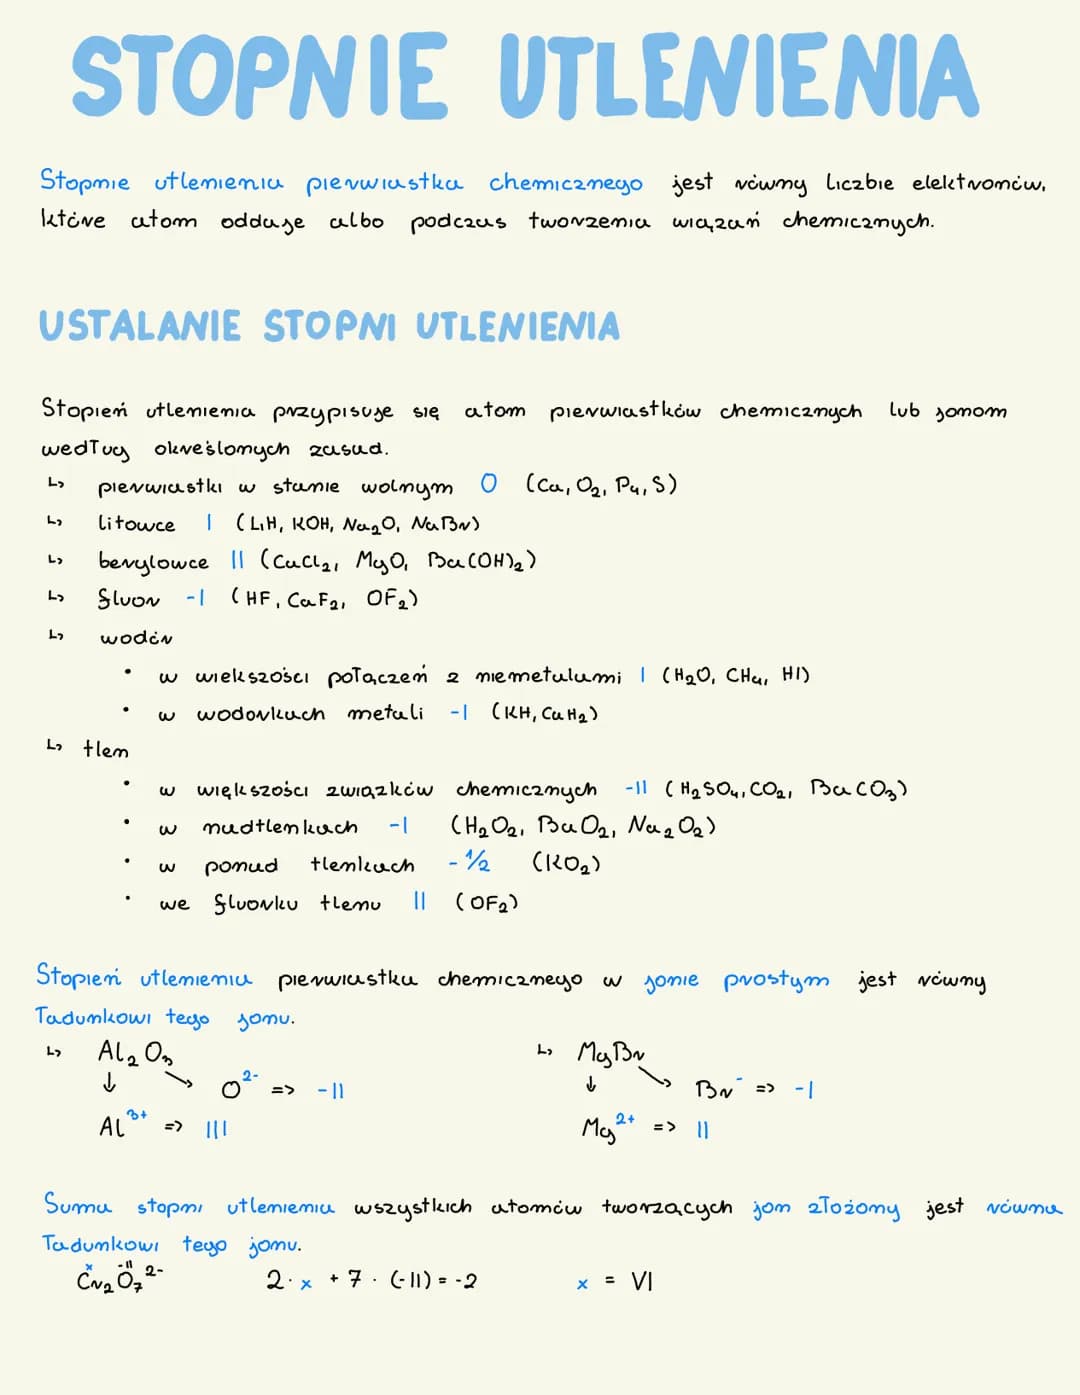 STOPNIE UTLENIENIA
Stopnie utlenienia pierwiastka chemicznego jest równy liczbie elektronów,
które atom oddaje albo podczas tworzenia wiązań chemicznych.
USTALANIE STOPNI UTLENIENIA
Stopień utlenienia przypisuje się atom pierwiastków chemicznych lub jonom
według określonych zasad.
↳ pierwiastki w stanie wolnym 0 (Ca, O₂, P₄, S)
↳ litowce I (LiH, KOH, Na₂O, NaBr)
↳ berylowce II (CaCl₂, MgO, Ba(OH)₂)
↳ fluor -I (HF, CaF₂, OF₂)
↳ wodór
• w wiekszości połączeń z niemetalami I (H₂O, CH₄, HI)
• w wodorkach metali -I (KH, CaH₂)
↳ tlen
• w większości związków chemicznych -II (H₂SO₄, CO₂, BaCO₃)
• w nadtlenkach -I (H₂O₂, BaO₂, Na₂O₂)
• w ponad tlenkach -½ (KO₂)
• we fluorku tlenu II (OF₂)
Stopień utlenienia pierwiastka chemicznego w jonie prostym jest równy
ładunkowi tego jonu.
↳ Al₂O₃ ↳ MgBr
↓ ↘ O²⁻ => -II ↓ ↘ Br⁻ => -I
Al³⁺ => III Mg²⁺ => II
Suma stopni utlenienia wszystkich atomów tworzących jon złożony jest równa
ładunkowi tego jonu.
x -II
Cr₂O₇²⁻ 2·x + 7·(-II) = -2 x = VI